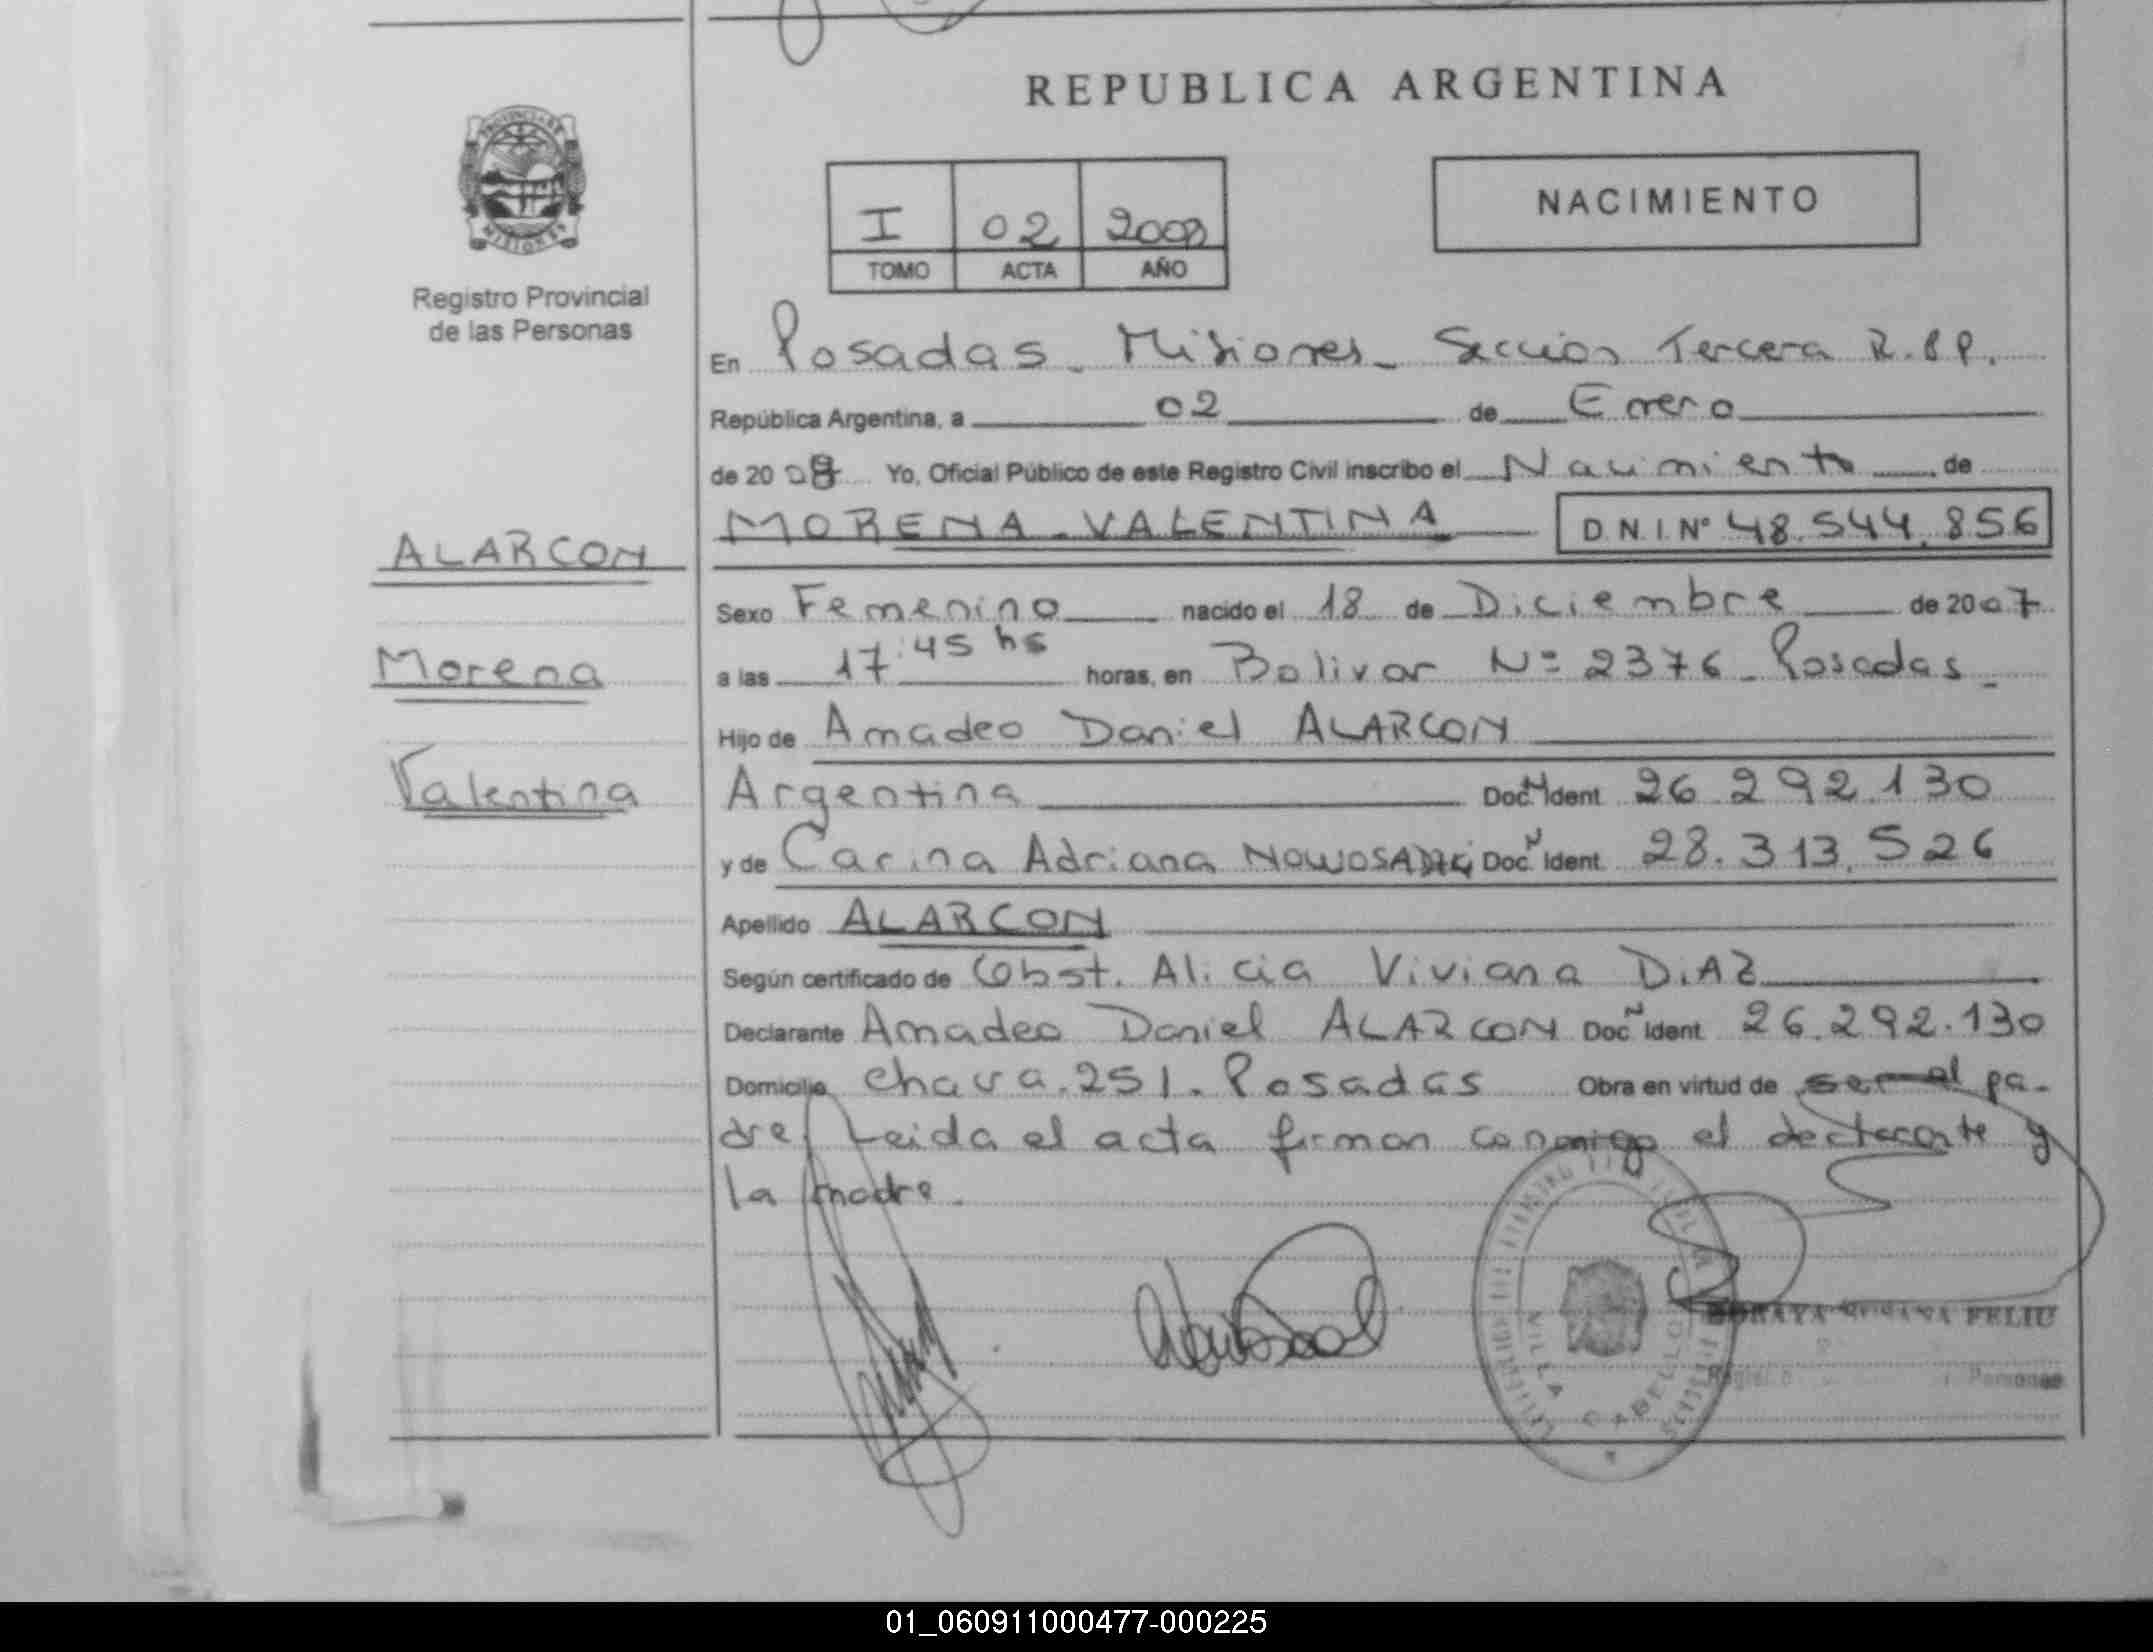 REPUBLICA ARGENTINA
PROVINCIA DE
MISIONES
Registro Provincial
de las Personas
I 02 2008
TOMO ACTA AÑO
NACIMIENTO
En Posadas - Misiones - Sección Tercera R.P.P.
República Argentina, a 02 de Enero
de 2008 Yo, Oficial Público de este Registro Civil inscribo el Nacimiento de
MORENA VALENTINA D.N.I.Nº 48.544.856
ALARCON
Morena
Valentina
Sexo Femenino nacido el 18 de Diciembre de 2007
a las 17:45 hs horas, en Bolivar Nº 2376 - Posadas -
Hijo de Amadeo Daniel ALARCON
Argentina Doc. N Ident. 26.292.130
y de Carina Adriana Doc. N Ident. 28.313.526
Apellido ALARCON
Según certificado de Obst. Alicia Viviana DIAZ
Declarante Amadeo Daniel ALARCON Doc. N Ident. 26.292.130
Domicilio Chava. 251. Posadas Obra en virtud de ser el pa-
dre, Leida el acta firman conmigo el declarante y
la madre.
VILLA CABELLO
FELIU
Personas
01_060911000477-000225